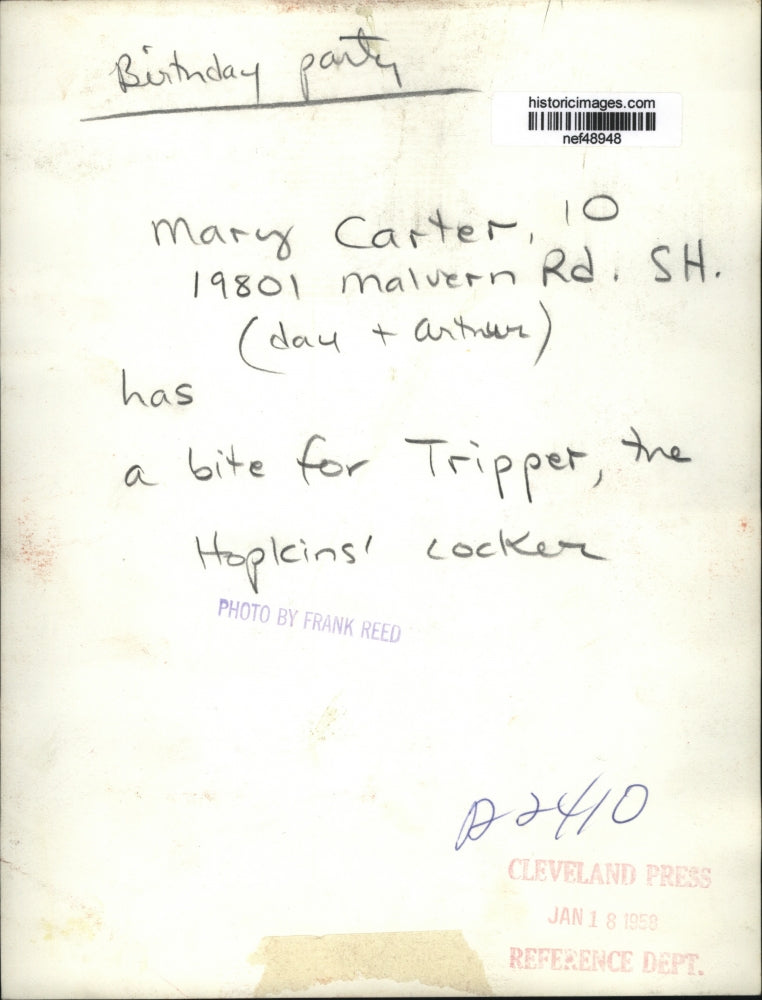 Birthday party
historicimages.com
nef48948
Mary Carter, 10
19801 Malvern Rd. SH.
(dau + Arthur)
has
a bite for Tripper, the
Hopkins' cocker
PHOTO BY FRANK REED
A2410
CLEVELAND PRESS
JAN 18 1958
REFERENCE DEPT.